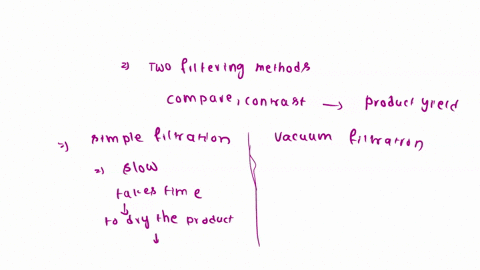 =) Two filtering methods
compare, contrast → product yield
=) simple filtration
vacuum filtration
=) slow
takes time
↓
to dry the product
↓